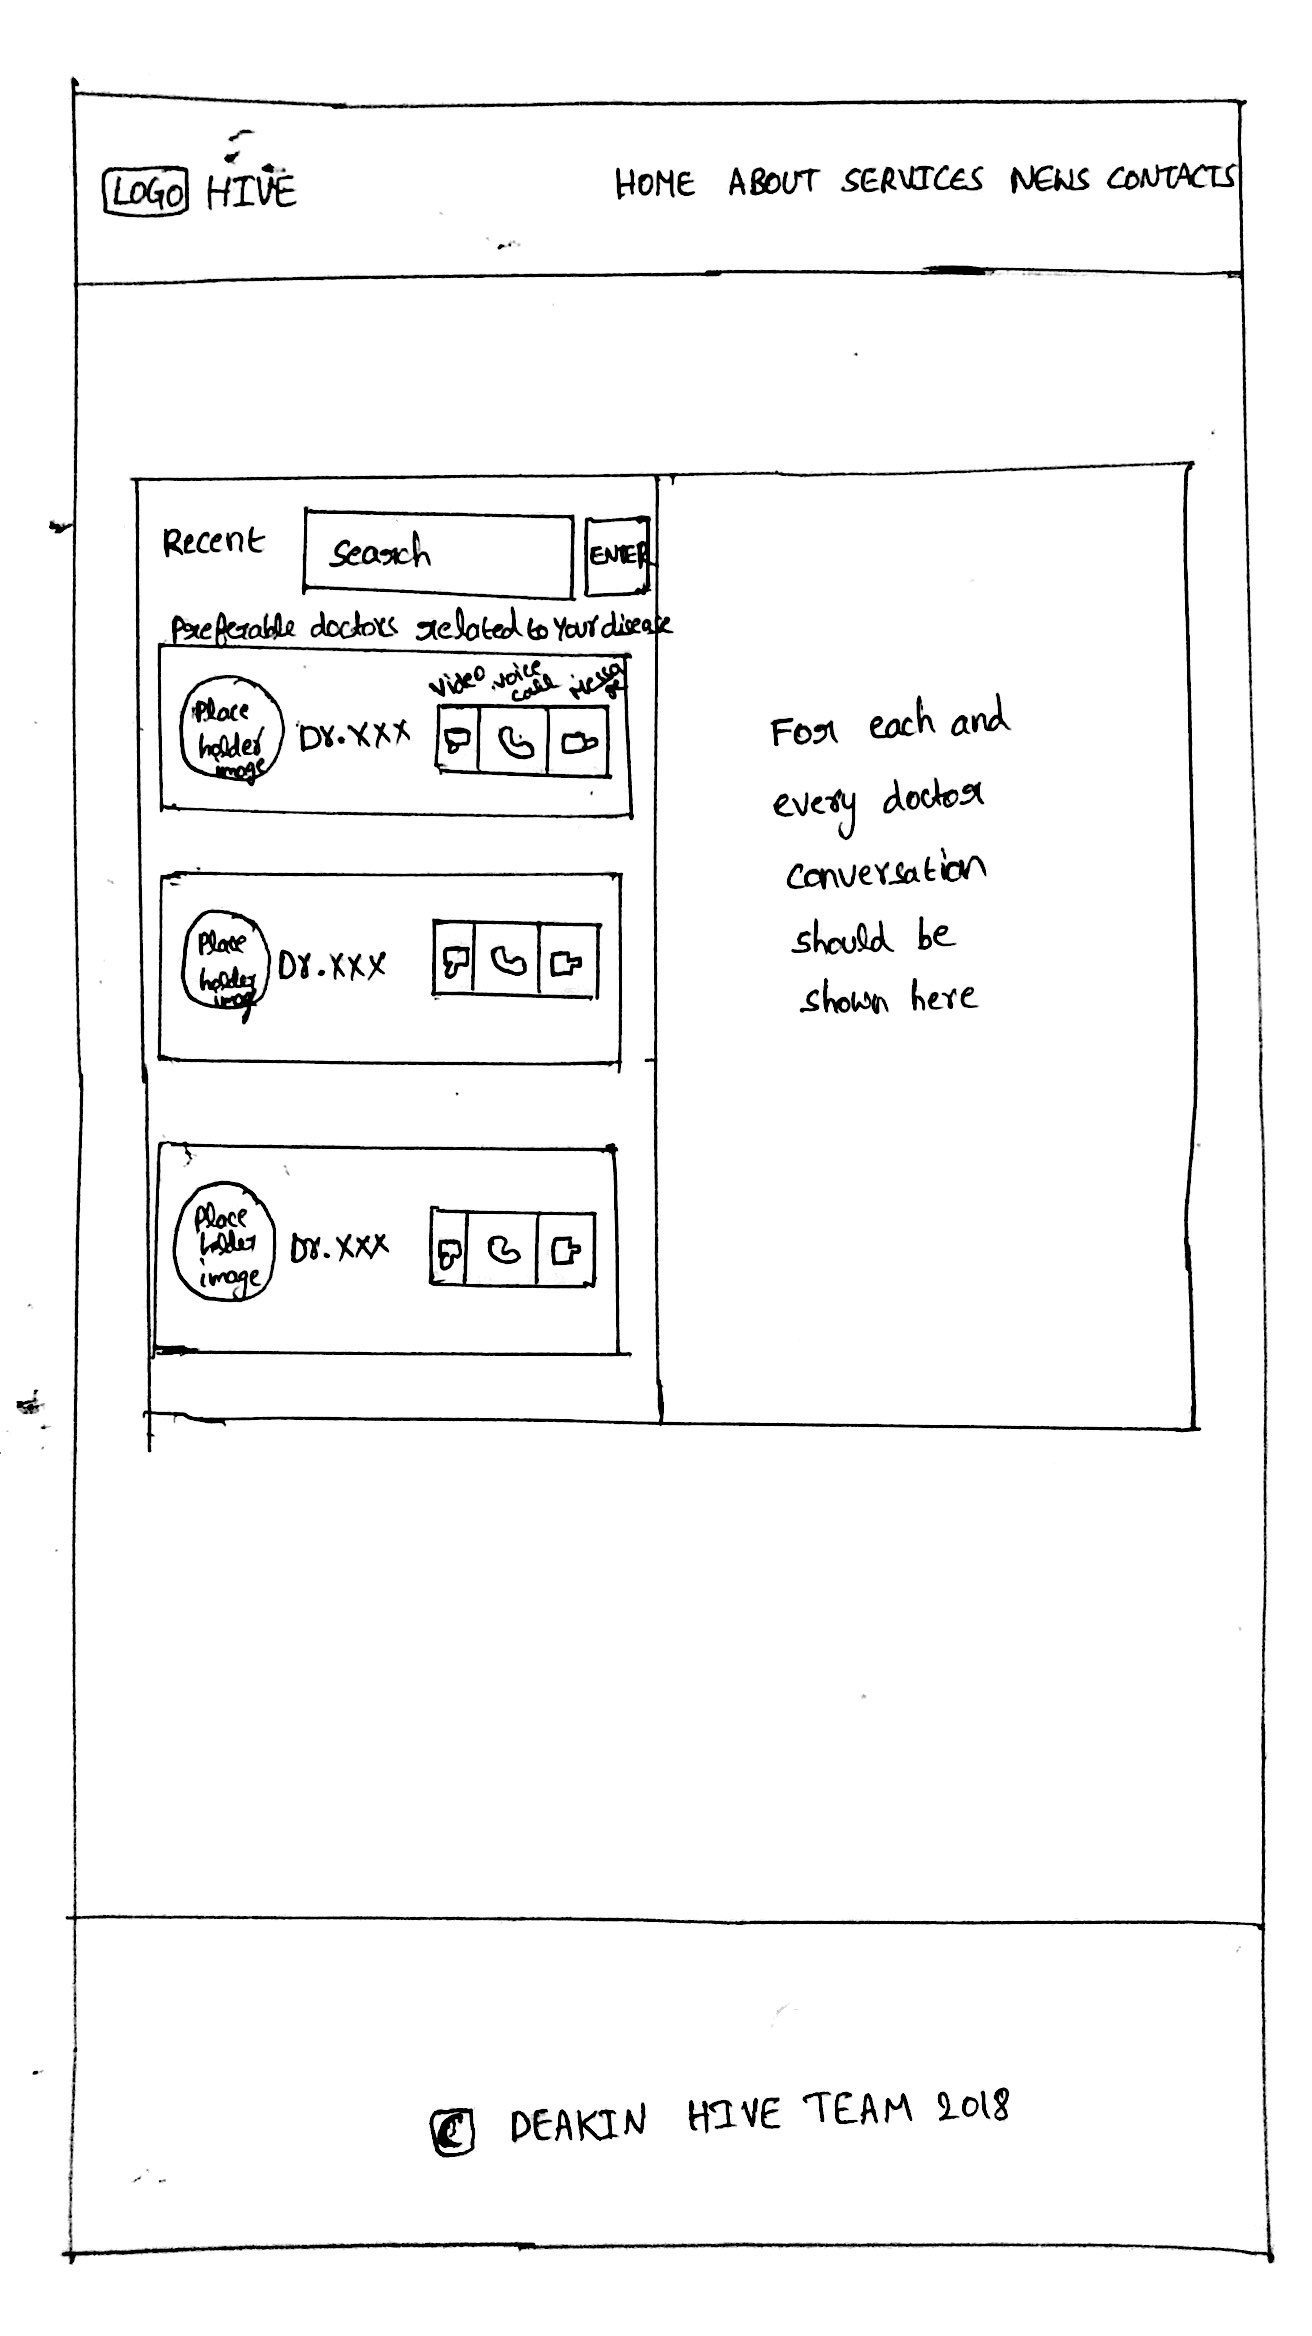 LOGO HIVE
HOME ABOUT SERVICES NEWS CONTACTS
Recent
Search
ENTER
Preferable doctors related to your disease
Video
voice
call
Messa
ge
Place
holder
image
Dr.XXX
Place
holder
image
Dr.XXX
Place
holder
image
Dr.XXX
For each and
every doctor
conversation
should be
shown here
© DEAKIN HIVE TEAM 2018